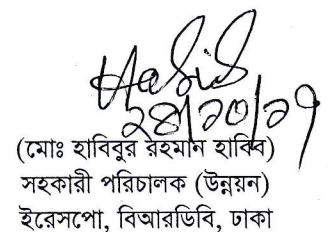 Habib
২৪/১০/১৭
(মোঃ হাবিবুর রহমান হাবিব)
সহকারী পরিচালক (উন্নয়ন)
ইরেসপো, বিআরডিবি, ঢাকা